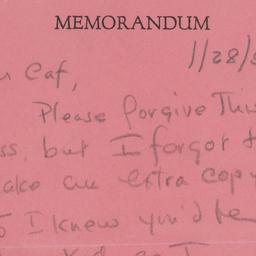 MEMORANDUM
1/28/
Caf,
Please forgive This
but I forgot
an extra copy
I knew you'd be